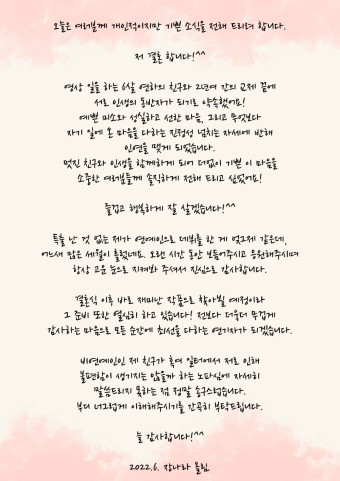 오늘은 여러분께 개인적이지만 기쁜 소식을 전해 드리려 합니다.
저 결혼 합니다!^^
영상 일을 하는 6살 연하의 친구와 2년여 간의 교제 끝에
서로 인생의 동반자가 되기로 약속했어요!
예쁜 미소와 성실하고 선한 마음, 그리고 무엇보다
자기 일에 온 마음을 다하는 진정성 넘치는 자세에 반해
인연을 맺게 되었습니다.
멋진 친구와 인생을 함께하게 되어 더없이 기쁜 이 마음을
소중한 여러분들께 솔직하게 전해 드리고 싶었어요!
즐겁고 행복하게 잘 살겠습니다!^^
특출 난 것 없는 제가 연예인으로 데뷔를 한 게 엊그제 같은데,
어느새 많은 세월이 흘렀네요. 오랜 시간 동안 보듬어주시고 응원해주시며
항상 고운 눈으로 지켜봐 주셔서 진심으로 감사합니다.
결혼식 이후 바로 재미난 작품으로 찾아뵐 예정이라
그 준비 또한 열심히 하고 있습니다! 전보다 더욱더 무겁게
감사하는 마음으로 모든 순간에 최선을 다하는 연기자가 되겠습니다.
비연예인인 제 친구가 혹여 일터에서 저로 인해
불편함이 생기지는 않을까 하는 노파심에 자세히
말씀드리지 못하는 점 정말 송구스럽습니다.
부디 너그럽게 이해해주시기를 간곡히 부탁드립니다.
늘 감사합니다!^^
2022.6. 장나라 올림.